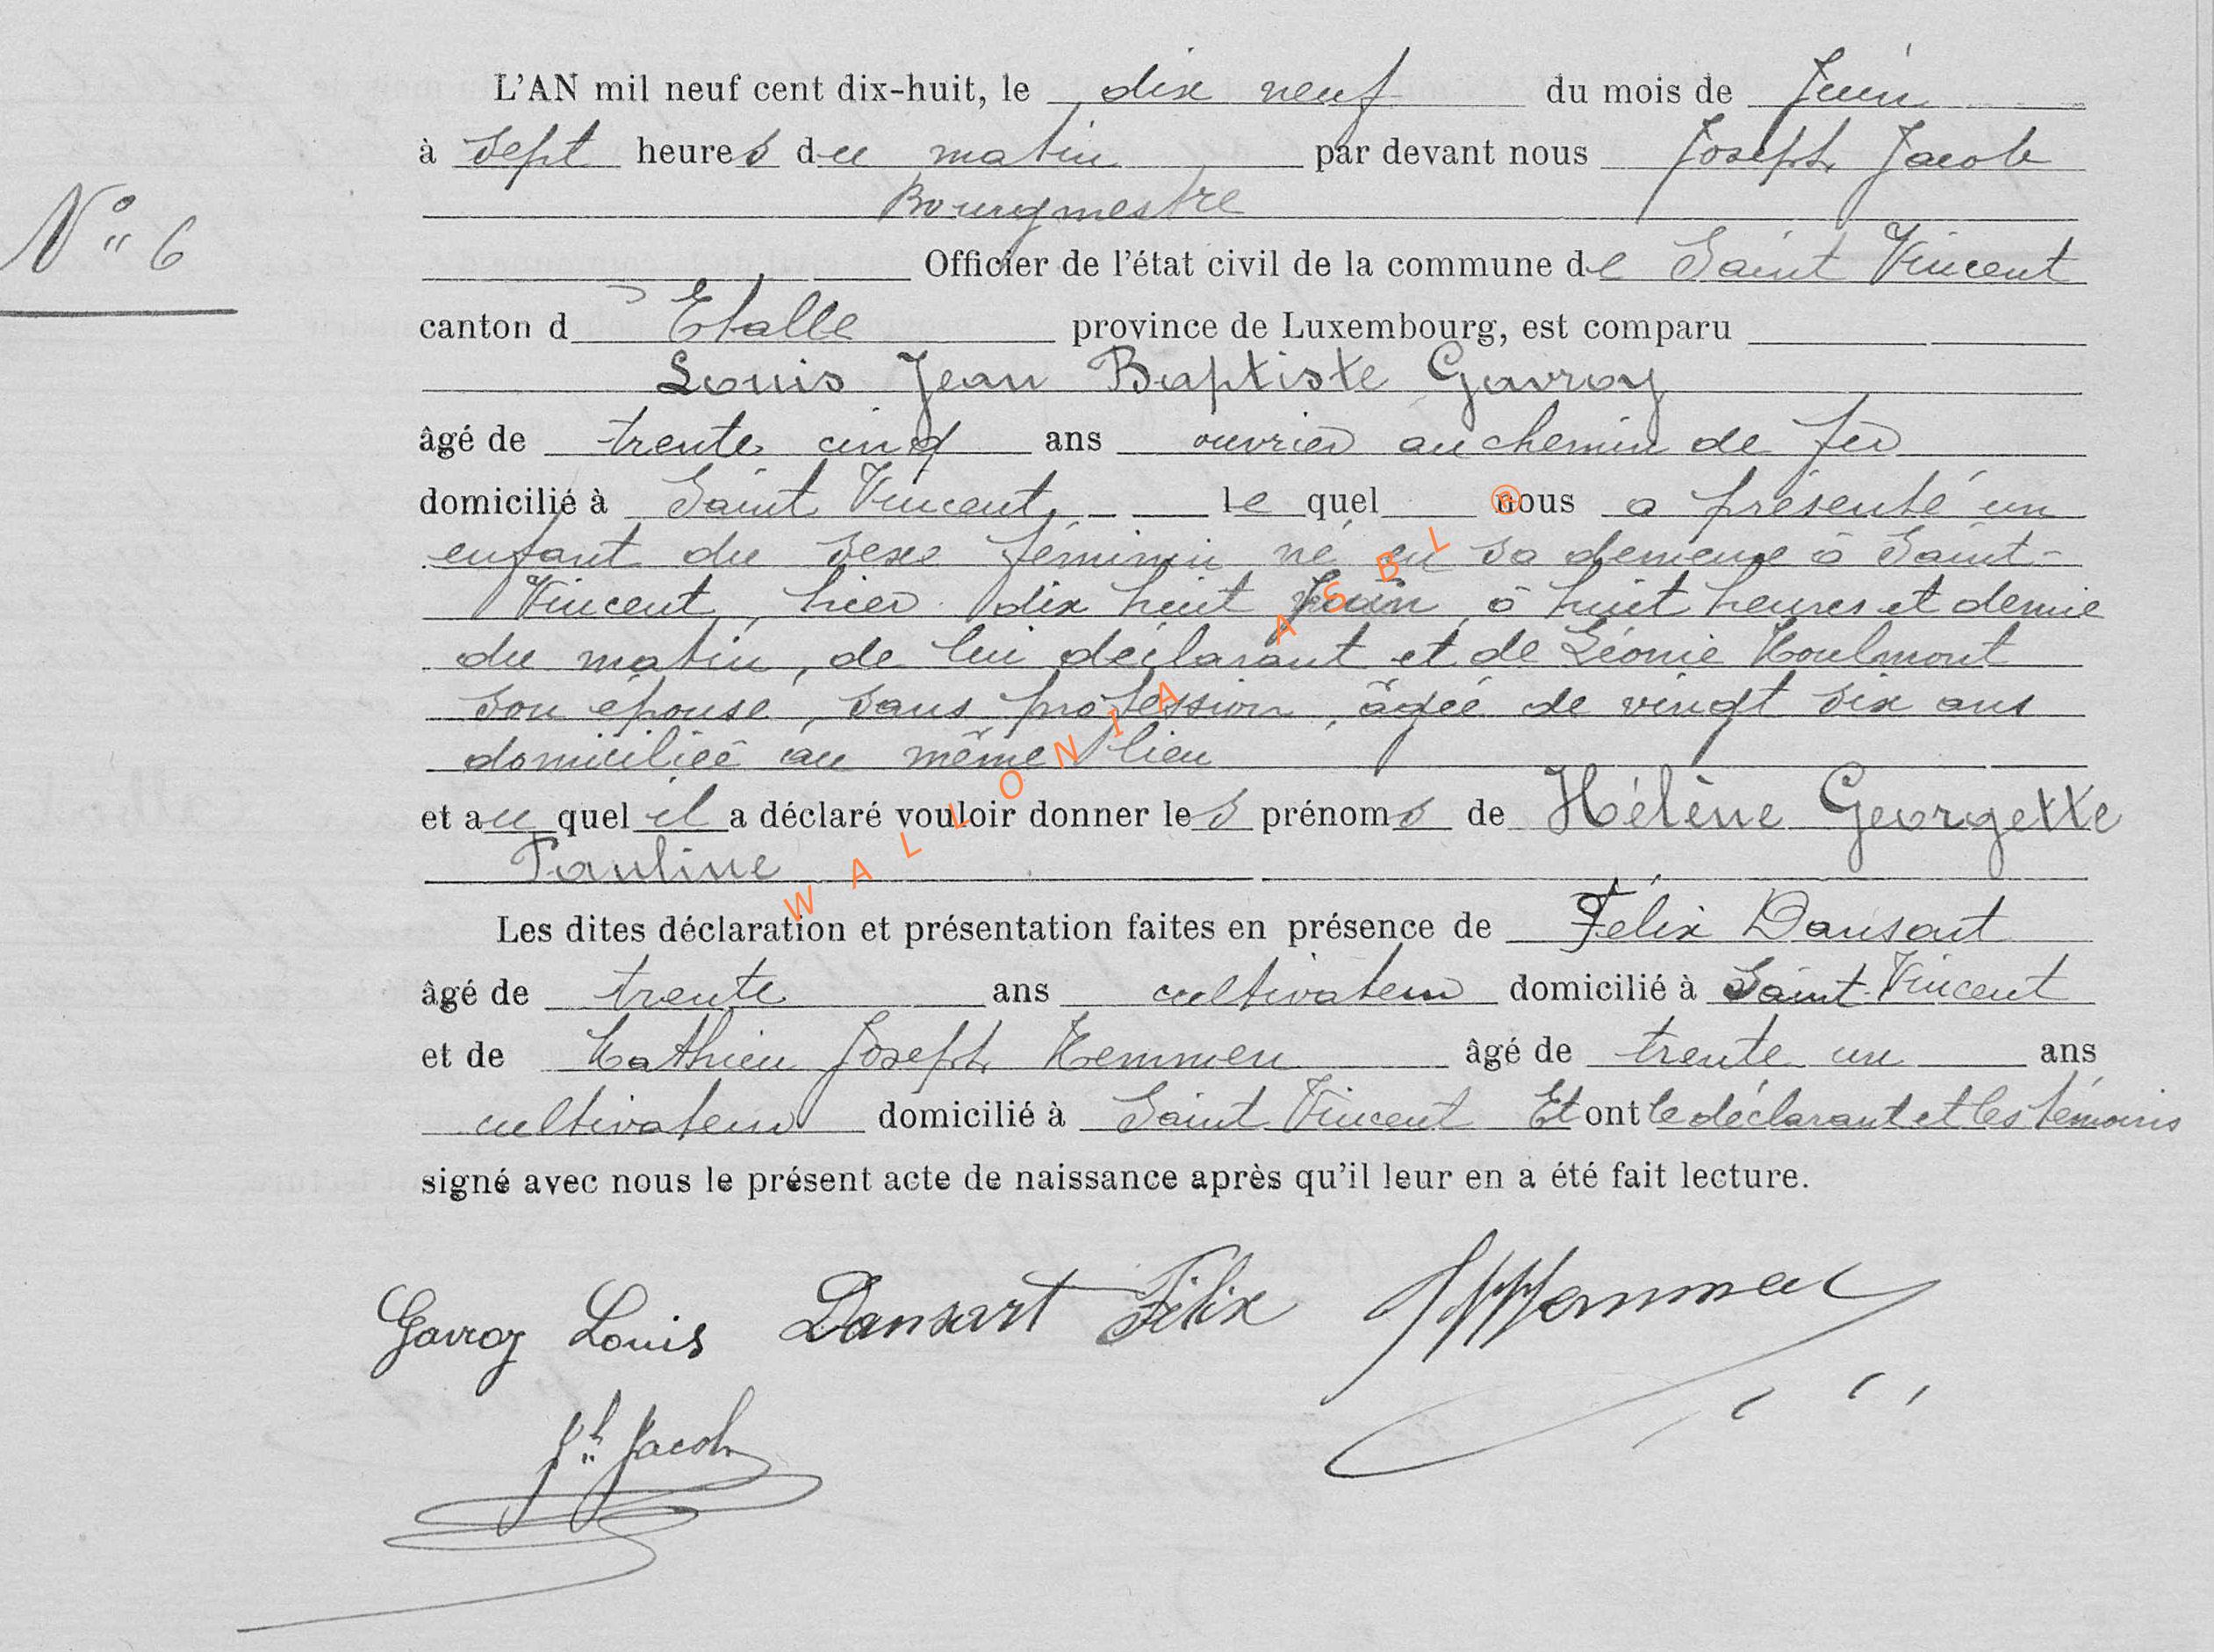 L'AN mil neuf cent dix-huit, le dix neuf du mois de Juin
à sept heures du matin par devant nous Joseph Jacob
Bourgmestre
N° 6
Officier de l'état civil de la commune de Saint Vincent
canton d Etalle province de Luxembourg, est comparu
Louis Jean Baptiste Gavroy
âgé de trente cinq ans ouvrier au chemin de fer
domicilié à Saint Vincent le quel nous a présenté un
enfant du sexe féminin né en sa demeure à Saint-
Vincent, hier dix huit Juin à huit heures et demie
du matin, de lui déclarant et de Léonie Houlmont
son épouse, sans profession, âgée de vingt six ans
domiciliée au même lieu
et au quel il a déclaré vouloir donner les prénoms de Hélène Georgette
Pauline
Les dites déclaration et présentation faites en présence de Félix Dansart
âgé de trente ans cultivateur domicilié à Saint-Vincent
et de Mathieu Joseph Hemmen âgé de trente un ans
cultivateur domicilié à Saint Vincent Et ont le déclarant et les témoins
signé avec nous le présent acte de naissance après qu'il leur en a été fait lecture.
Gavroy Louis Dansart Félix
Jh Jacob
WALLONIA ASBL ®